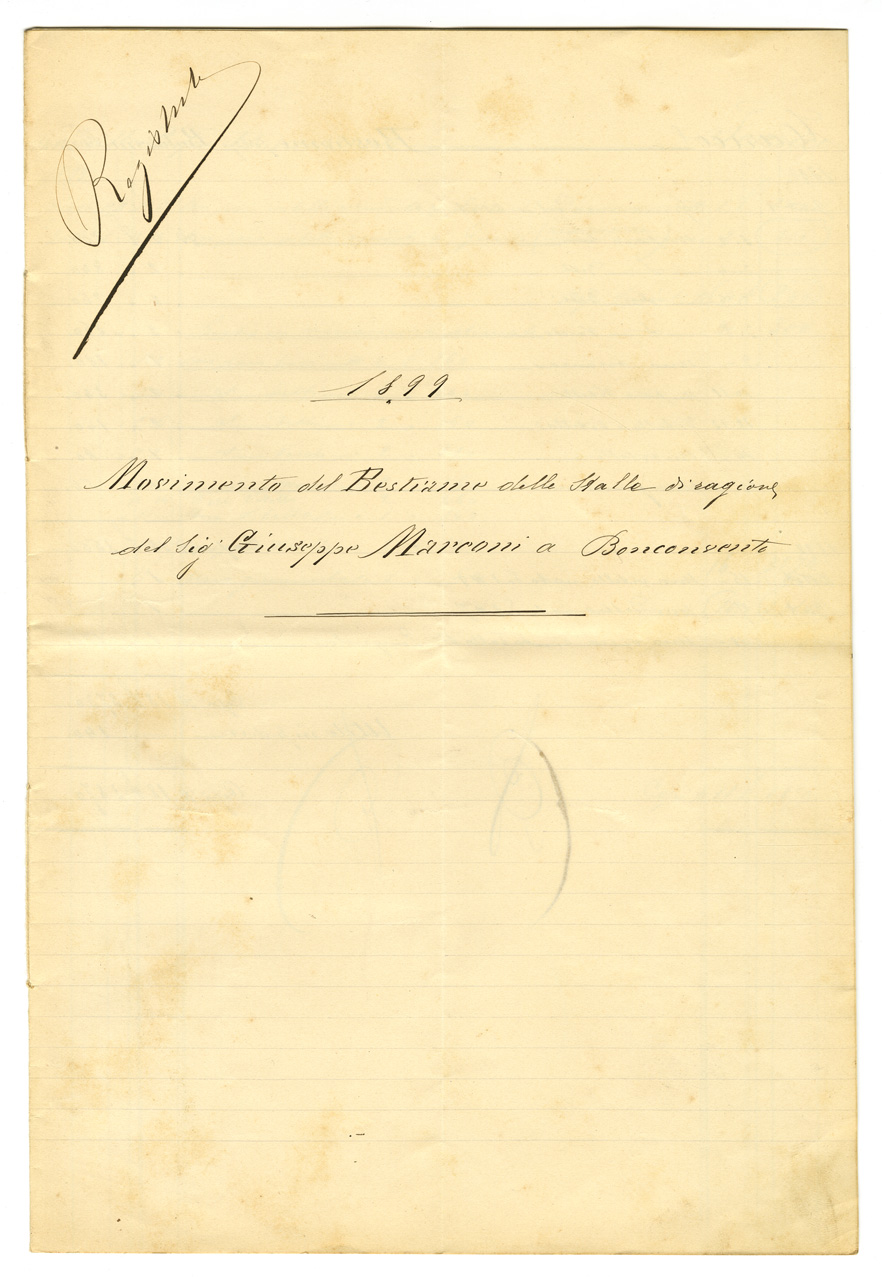 Registrato
1899
Movimento del Bestiame delle Stalle di ragione
del Sig. Giuseppe Marconi a Bonconvento